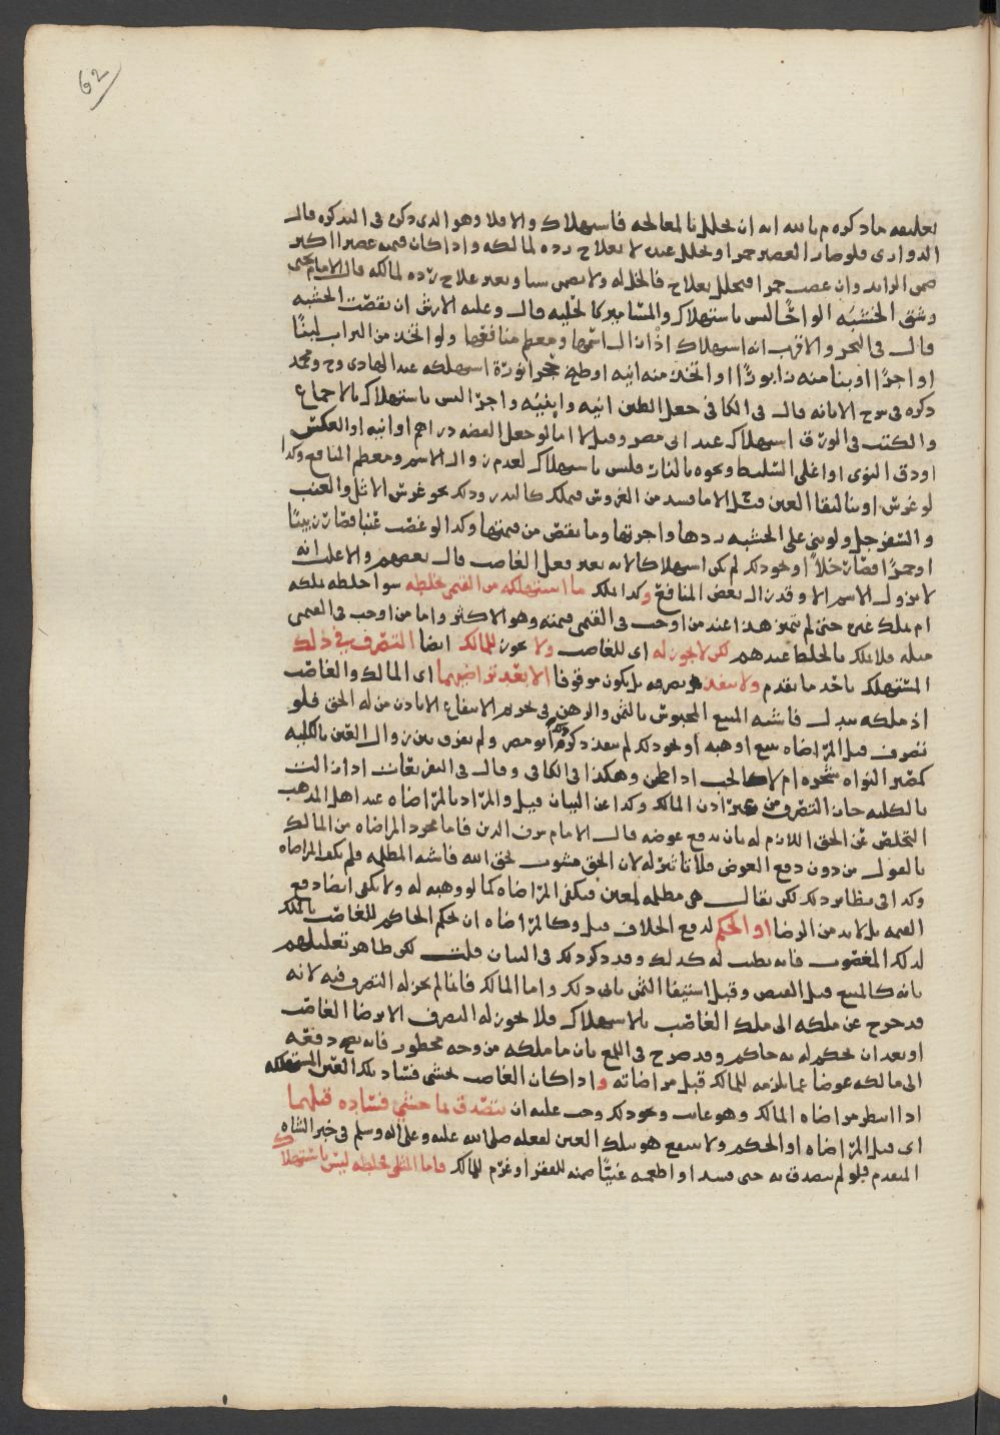 62
تعليقه ما ذكره م بالله انه ان تخلل بالمعالجه فاستهلاك والا فلا وهو الذي ذكره في التذكره قال
الدواري فلو صار العصير خمرا وتخلل عنده لا بعلاج رده لمالكه واذا كان قيمه عصيرا اكثر
ضمن الزايد وان غصب خمرا فتخلل بعلاج فالخل له ولا يضمن شيا وبغير علاج رده لمالكه قال الامام يحيى
وشق الخشبه الواحًا ليس باستهلاك والمسامير كالحليه قال وعليه الارش ان نقصت الخشبه
قال في البحر والاقرب انه استهلاك اذ ازال اسمها ومعظم منافعها ولو اتخذ من التراب لبنًا
او اجرًا او بنا منه او اتخذ منه انيه او طبخ حجرا نوره استهلكه عند الهادي وح ومحمد
ذكره في شرح الابانه قال في الكافي جعل الطين انيه وابنيه واجرا ليس باستهلاك بالاجماع
والكتب في الورق استهلاك عند ابي مضر وقيل لا اما لو جعل الفضه دراهم او انيه او العكس
او دق النوى او اغلى السليط ونحوه بالنار فليس باستهلاك لعدم زوال الاسم ومعظم المنافع وكذا
لو غرس او بنا لبقا العين قيل الا ما فسد من الغروس فيملك كالبذر وذلك نحو غرس الاثل والعنب
والسفرجل ولو بنى على الخشبه ردها واجرتها وما نقص من قيمتها وكذا لو غصب عنبا فصار زبيبًا
او خمرًا فصار خلًا او نحو ذلك لم يكن استهلاكا لانه بغير فعل الغاصب قال بعضهم والاغلب انه
لا يزول الاسم الا وقد زال بعض المنافع وكذا يملك ما استهلكه من القيمي بخلطه سوا خلطه بملكه
ام بملك غيره حتى لم يتميز هذا عند من اوجب في القيمي قيمته وهو الاكثر واما من اوجب في القيمي
مثله فلا يملك بالخلط عندهم لكن لا يجوز له اي للغاصب ولا يجوز للمالك ايضا التصرف في ذلك
المستهلك باحد ما تقدم ولا ينفذ تصرفه بل يكون موقوفا الا بعد تراضيهما اي المالك والغاصب
اذ ملكه ببدل فاشبه المبيع المحبوس بالثمن والرهن في تحريم الانتفاع الا باذن من له الحق فلو
تصرف قبل المراضاه ببيع او هبه او نحو ذلك لم ينفذ ذكره ابو مضر ولم يفرق بين زوال العين بالكليه
كمصير النواه شجره ام لا كالحب اذا طحن وهكذا في الكافي وقال في التفريعات اذا زالت
بالكليه جاز التصرف من غير اذن المالك وكذا عن البيان قيل والمراد بالمراضاه عند اهل المذهب
التخلص عن الحق اللازم له بان يدفع عوضه قال الامام شرف الدين فاما مجرد المراضاه من المالك
بالقول من دون دفع العوض فلا تاثير له لان الحق مشوب بحق الله فاشبه المظلمه فلم يكف المراضاه
وكذا في نظاير ذلك لكن يقال هي مظلمه لمعين فيكفي المراضاه كما لو وهبه له ولا يكفي ايضا دفع
القيمه بل لا بد من الرضا او الحكم لدفع الخلاف قيل وكالمراضاه ان يحكم الحاكم للغاصب بالملك
لذلك المغصوب فانه يطيب له كذلك وقد ذكر ذلك في البيان قلت لكن ظاهر تعليلهم
بانه كالمبيع قبل القبض وقبل استيفا الثمن يابى ذلك واما المالك فانما لم يجز له التصرف فيه لانه
قد خرج عن ملكه الى ملك الغاصب بالاستهلاك فلا يجوز له التصرف الا برضا الغاصب
او بعد ان يحكم له به حاكم وقد صرح في اللمع بان ما ملكه من وجه محظور فانه يصح دفعه
الى مالكه عوضا عما يلزمه للمالك قبل مراضاته واذا كان الغاصب خشي فساد تلك العين المستهلكه
اذا انتظر مراضاه المالك وهو غايب ونحو ذلك وجب عليه ان يتصدق بما خشي فساده قبلهما
اي قبل المراضاه او الحكم ولا ينتفع هو بتلك العين لفعله صلى الله عليه وعلى اله وسلم في خبر الشاه
المتقدم فلو لم يتصدق به حتى فسد او اطعمه غنيًا ضمنه للفقرا وغرم للمالك فاما المثلي فخلطه ليس باستهلاك